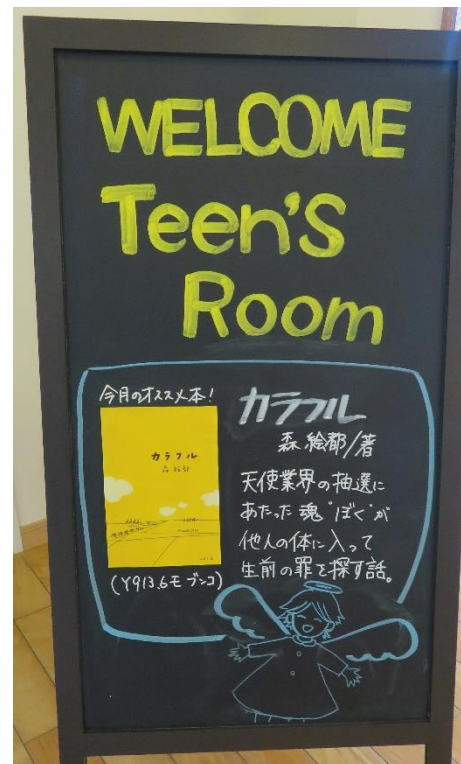 WELCOME
Teen's
Room
今月のオススメ本!
カラフル
森 絵都
(Y913.6モ ブンコ)
カラフル
森 絵都/著
天使業界の抽選に
あたった魂“ぼく”が
他人の体に入って
生前の罪を探す話。